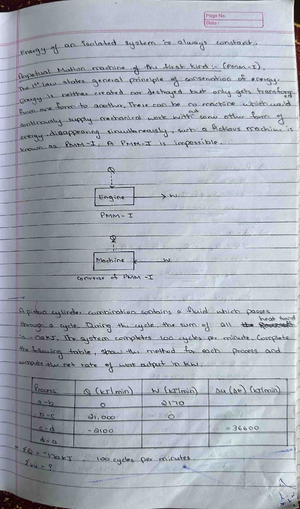 Page No.
Date
Energy of an isolated system is always constant.
Perpetual Motion machine of the first kind :- (PMM-I)
The 1st law states general principle of conservation of energy.
Energy is neither created nor destroyed but only gets transform
from one form to another. There can be no machine which would
continuously supply mechanical work with some other form of
energy disappearing simultaneously. such a fictious machine is
known as PMM-I. A PMM-I is impossible.
Q
Engine
W
PMM-I
Q
Machine
W
Converse of PMM-I
A piston cylinder combination contains a fluid which passes
through a cycle. During the cycle, the sum of all heat
is -170 KJ. The system completes 100 cycles per minute. Complete
the following table, show this method for each process and
compute the net rate of work output in KW.
Process Q (KJ/min) W (KJ/min) Δu (ΔE) (KJ/min)
a-b 0 2170
b-c 21,000 0
c-d -2100 -36600
d-a
ΣQ = -170 KJ 100 cycles per minutes
= ?